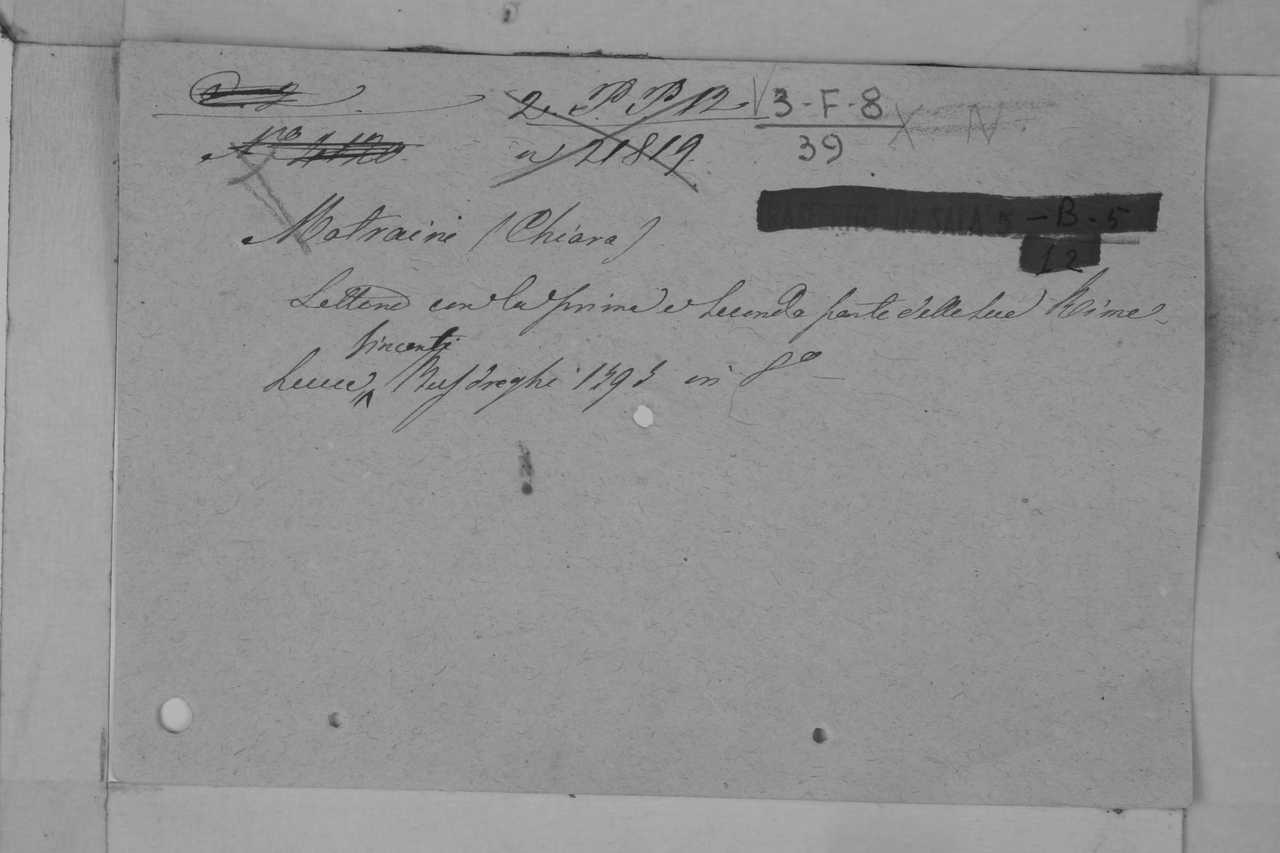 2. P. P. B 3-F-8
n 21819. 39
5-B-5
12
Matraini (Chiara)
Lettere con la prima e seconda parte delle sue Rime
Vincenti
Lucca Busdraghi 1595 in 8º